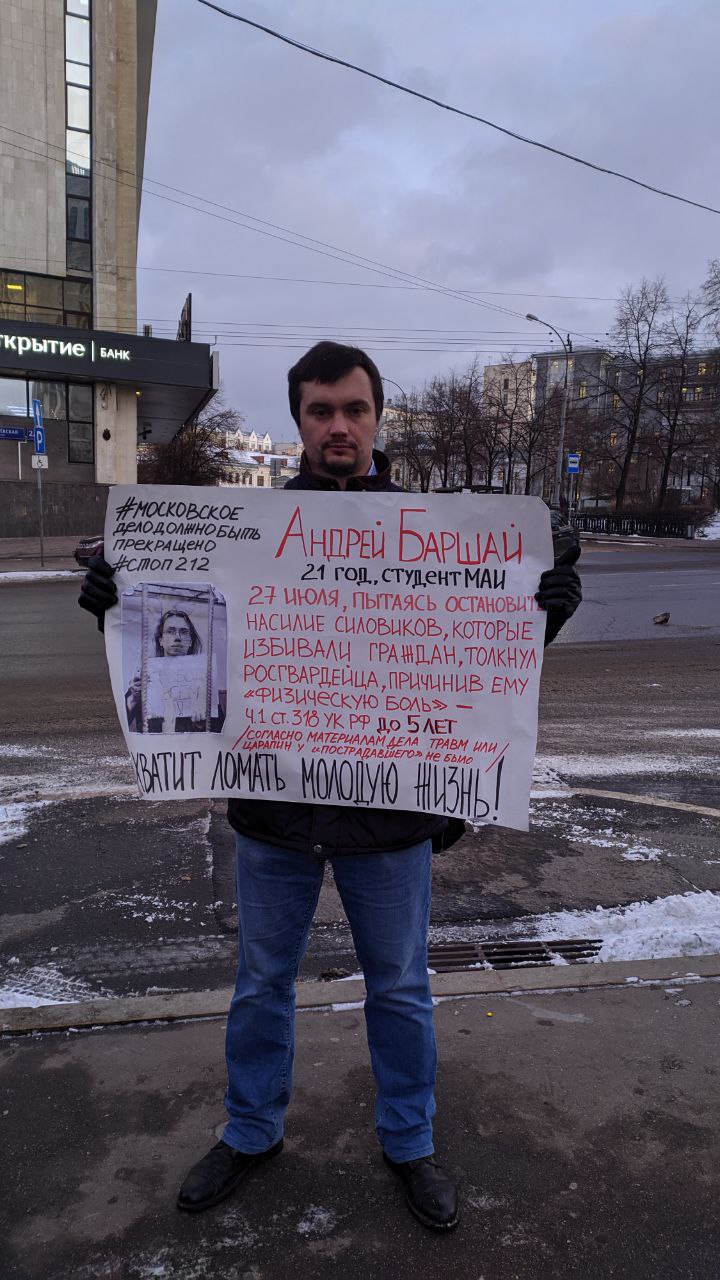 ткрытие | БАНК
#МОСКОВСКОЕ
ДЕЛО ДОЛЖНО БЫТЬ
ПРЕКРАЩЕНО
#СТОП212
АНДРЕЙ БАРШАЙ
21 ГОД, СТУДЕНТ МАИ
27 ИЮЛЯ, ПЫТАЯСЬ ОСТАНОВИТЬ
НАСИЛИЕ СИЛОВИКОВ, КОТОРЫЕ
ИЗБИВАЛИ ГРАЖДАН, ТОЛКНУЛ
РОСГВАРДЕЙЦА, ПРИЧИНИВ ЕМУ
«ФИЗИЧЕСКУЮ БОЛЬ» –
Ч.1 СТ. 318 УК РФ ДО 5 ЛЕТ
/СОГЛАСНО МАТЕРИАЛАМ ДЕЛА ТРАВМ ИЛИ/
ЦАРАПИН У «ПОСТРАДАВШЕГО» НЕ БЫЛО/
ХВАТИТ ЛОМАТЬ МОЛОДУЮ ЖИЗНЬ!
P